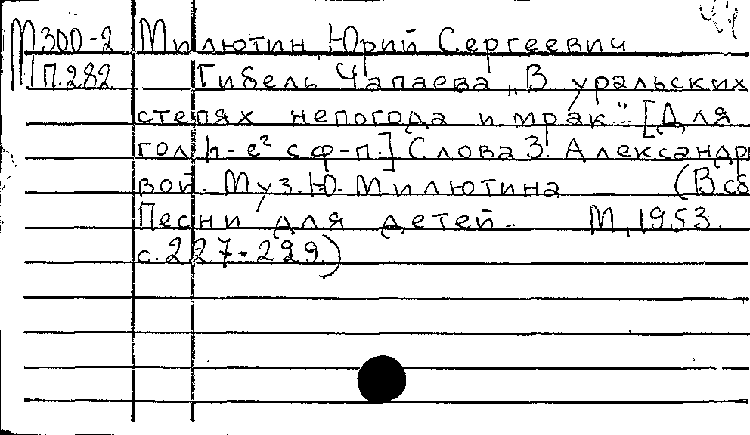 М300-2 Милютин, Юрий Сергеевич
П.282 Гибель Чапаева „В уральских
степях непогода и мрак" [Для
гол. h-e² с ф-п.] Слова З. Александро
вой. Муз. Ю. Милютина (В сб
Песни для детей. М, 1953.
с. 227-229.)